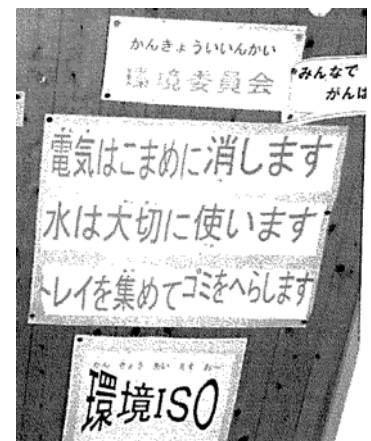 かんきょういいんかい
環境委員会
みんなで
がんば
電気はこまめに消します
水は大切に使います
トレイを集めてゴミをへらします
かんきょうあいえすおー
環境ISO